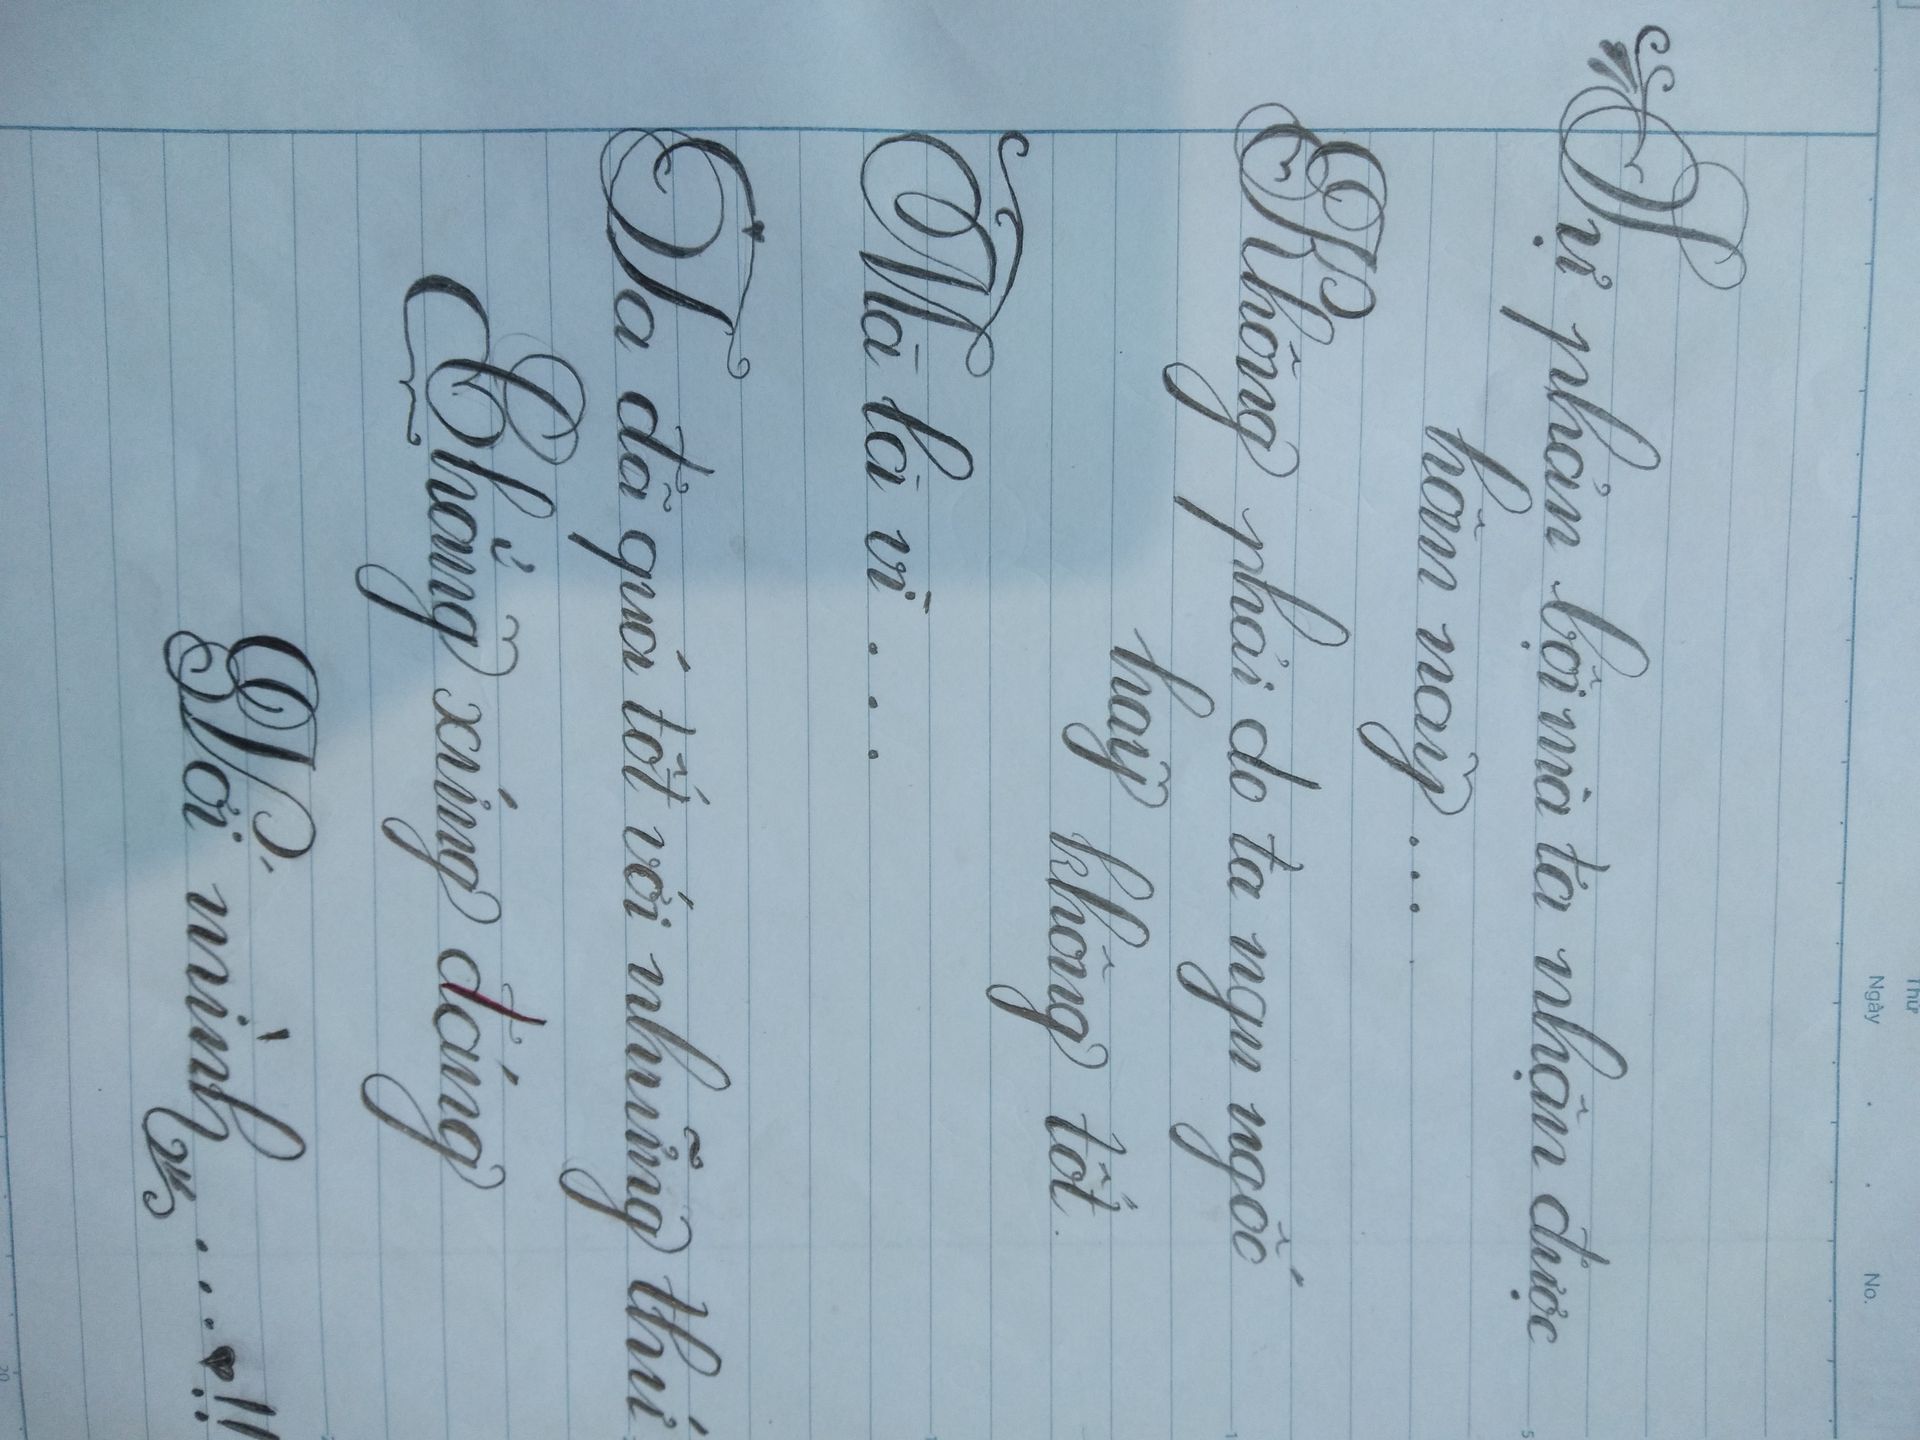 Thứ
Ngày . . No.
Sự phản bội mà ta nhận được
hôm nay ...
Không phải do ta ngu ngốc
hay không tốt.
Mà là vì ...
Ta đã quá tốt với những thứ
Chẳng xứng đáng
Với mình ... ♥!!